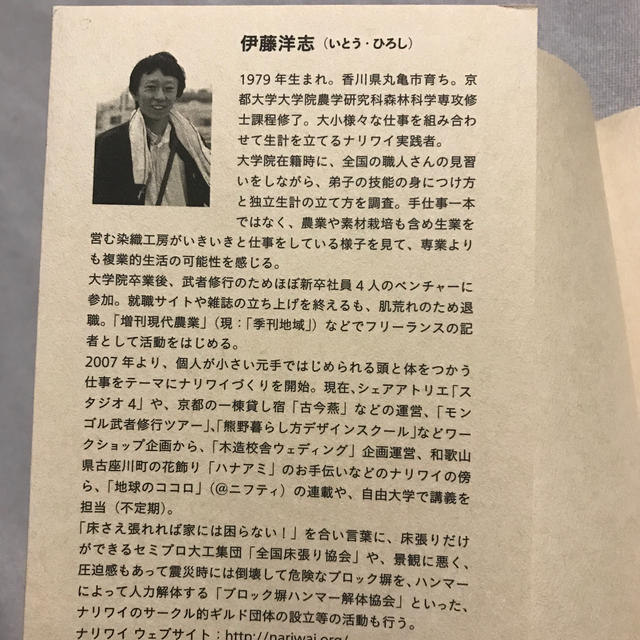 伊藤洋志（いとう・ひろし）
1979年生まれ。香川県丸亀市育ち。京
都大学大学院農学研究科森林科学専攻修
士課程修了。大小様々な仕事を組み合わ
せて生計を立てるナリワイ実践者。
大学院在籍時に、全国の職人さんの見習
いをしながら、弟子の技能の身につけ方
と独立生計の立て方を調査。手仕事一本
ではなく、農業や素材栽培も含め生業を
営む染織工房がいきいきと仕事をしている様子を見て、専業より
も複業的生活の可能性を感じる。
大学院卒業後、武者修行のためほぼ新卒社員4人のベンチャーに
参加。就職サイトや雑誌の立ち上げを終えるも、肌荒れのため退
職。「増刊現代農業」（現：「季刊地域」）などでフリーランスの記
者として活動をはじめる。
2007年より、個人が小さい元手ではじめられる頭と体をつかう
仕事をテーマにナリワイづくりを開始。現在、シェアアトリエ「ス
タジオ4」や、京都の一棟貸し宿「古今燕」などの運営、「モン
ゴル武者修行ツアー」、「熊野暮らし方デザインスクール」などワー
クショップ企画から、「木造校舎ウェディング」企画運営、和歌山
県古座川町の花飾り「ハナアミ」のお手伝いなどのナリワイの傍
ら、「地球のココロ」（@ニフティ）の連載や、自由大学で講義を
担当（不定期）。
「床さえ張れれば家には困らない！」を合い言葉に、床張りだけ
ができるセミプロ大工集団「全国床張り協会」や、景観に悪く、
圧迫感もあって震災時には倒壊して危険なブロック塀を、ハンマー
によって人力解体する「ブロック塀ハンマー解体協会」といった、
ナリワイのサークル的ギルド団体の設立等の活動も行う。
ナリワイ ウェブサイト：http://nariwai.org/